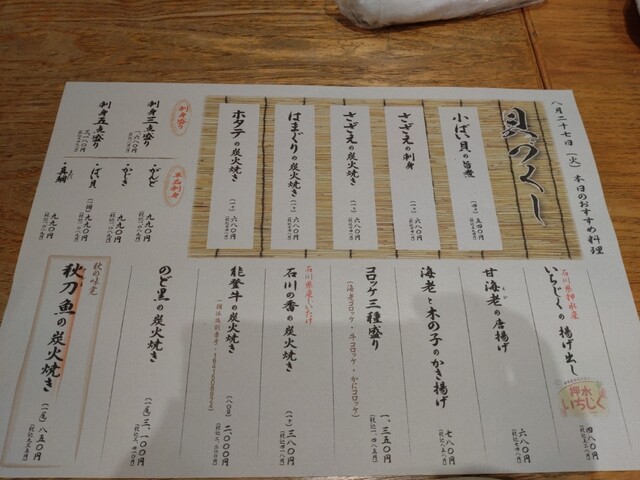 八月二十七日（火）本日のおすすめ料理
貝づくし
小ばい貝の旨煮
五四〇円
さざえの刺身
六八〇円
さざえの炭火焼き
六八〇円
はまぐりの炭火焼き
六八〇円
ホタテの炭火焼き
六八〇円
刺身盛り
刺身三点盛り
刺身五点盛り
単品刺身
・がんど
九九〇円
・かじき
九九〇円
・ばい貝
九九〇円
・真鯛
九九〇円
石川県押水産
いちじくの揚げ出し
押水いちじく
四八〇円
甘海老の唐揚げ
六八〇円
海老と木の子のかき揚げ
七八〇円
コロッケ三種盛り
（海老コロッケ・牛コロッケ・かにコロッケ）
一、三五〇円
石川県産しいたけ
石川の香の炭火焼き
三八〇円
能登牛の炭火焼き
（八〇g）
二、〇〇〇円
のど黒の炭火焼き
（一尾）
三、一〇〇円
秋の味覚
秋刀魚の炭火焼き
（一尾）
八五〇円